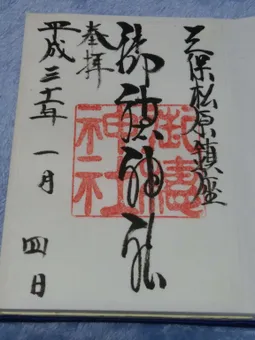 三保松原鎮座
御穂神社
奉拝
平成三十一年 一月 四日
御穂
神社